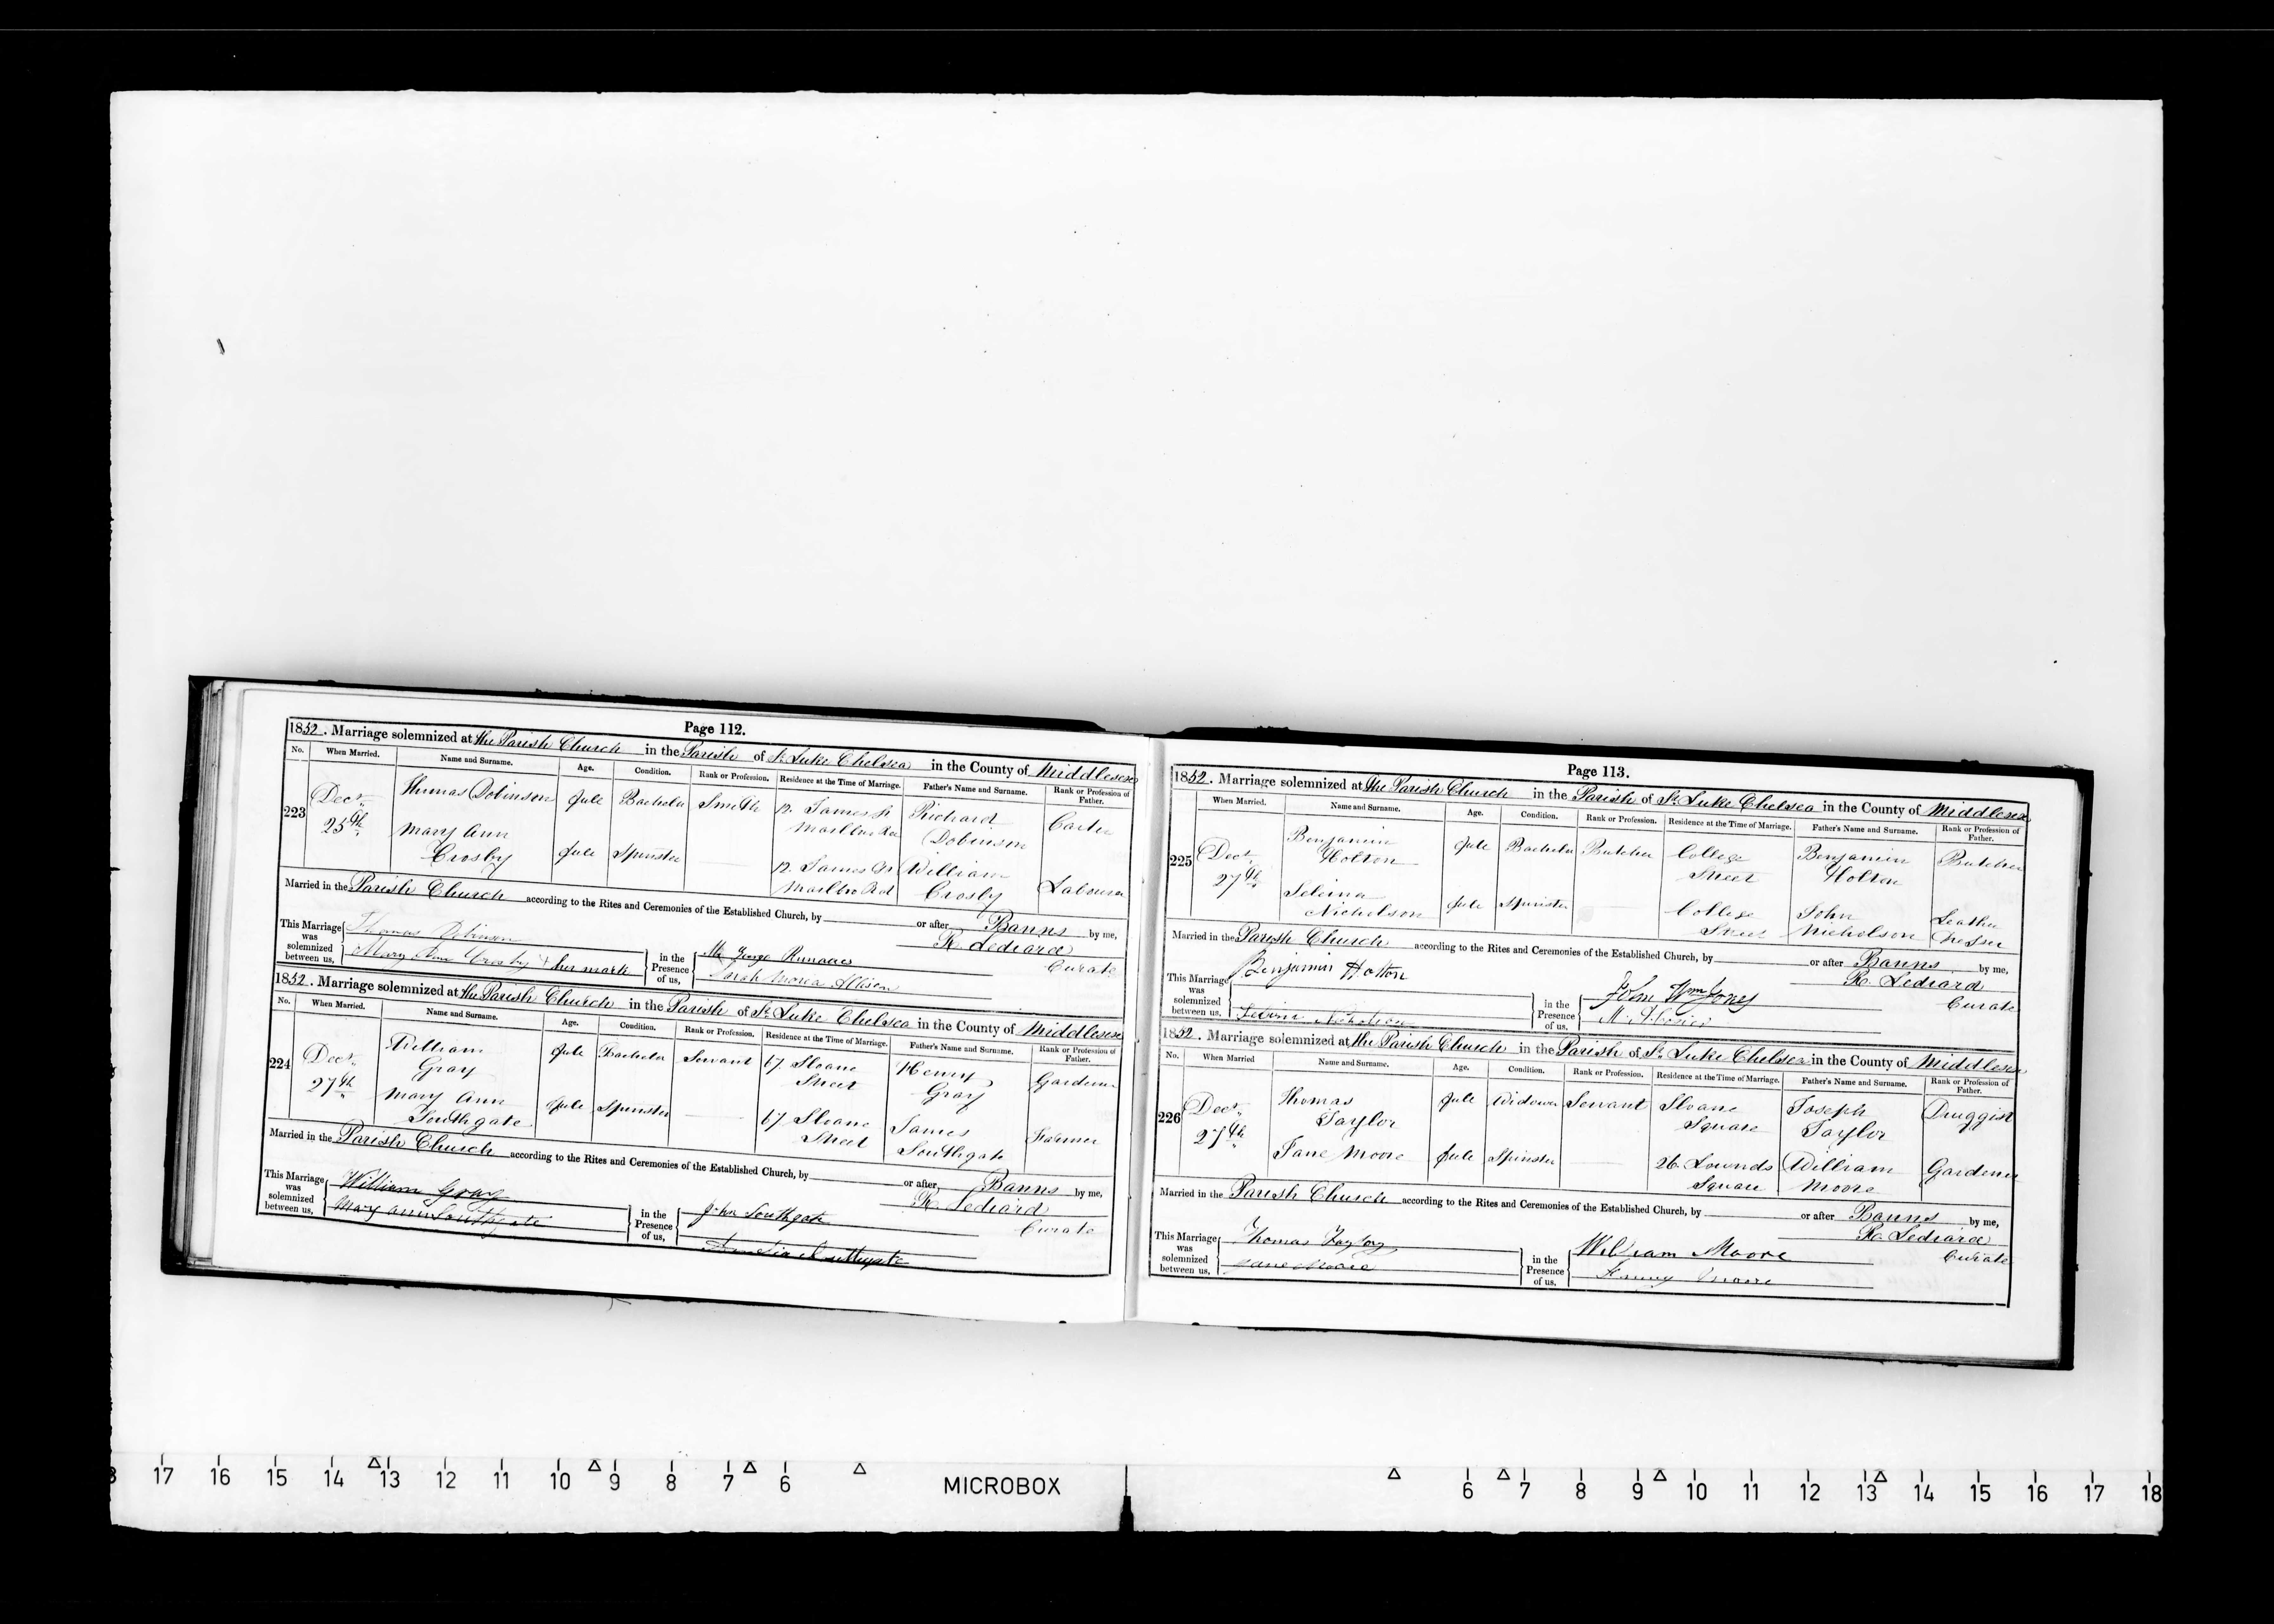 Page 112.
1852. Marriage solemnized at the Parish Church in the Parish of St. Luke Chelsea in the County of Middlesex
No. When Married. Name and Surname. Age. Condition. Rank or Profession. Residence at the Time of Marriage. Father's Name and Surname. Rank or Profession of Father.
223 Decr. 25th Thomas Dobinson full Bachelor Smith 12. James St Marlbro Rd Richard Dobinson Carter
Mary Ann Crosby full Spinster 12. James St Marlbro Rd William Crosby Labourer
Married in the Parish Church according to the Rites and Ceremonies of the Established Church, by or after Banns by me,
R. Lediard
Curate
This Marriage was solemnized between us, Thomas Dobinson
Mary Ann Crosby x her mark
in the Presence of us, George
Sarah
1852. Marriage solemnized at the Parish Church in the Parish of St. Luke Chelsea in the County of Middlesex
No. When Married. Name and Surname. Age. Condition. Rank or Profession. Residence at the Time of Marriage. Father's Name and Surname. Rank or Profession of Father.
224 Decr. 27th William Gray full Bachelor Servant 67 Sloane Street Henry Gray Gardener
Mary Ann Southgate full Spinster 67 Sloane Street James Southgate Farmer
Married in the Parish Church according to the Rites and Ceremonies of the Established Church, by or after Banns by me,
R. Lediard
Curate
This Marriage was solemnized between us, William Gray
Mary Ann Southgate
in the Presence of us, John Southgate
Southgate
Page 113.
1852. Marriage solemnized at the Parish Church in the Parish of St. Luke Chelsea in the County of Middlesex
When Married. Name and Surname. Age. Condition. Rank or Profession. Residence at the Time of Marriage. Father's Name and Surname. Rank or Profession of Father.
225 Decr. 27th Benjamin Holton full Bachelor Butcher College Street Benjamin Holton Butcher
Selina Nicholson full Spinster College Street John Nicholson Leather Dresser
Married in the Parish Church according to the Rites and Ceremonies of the Established Church, by or after Banns by me,
R. Lediard
Curate
This Marriage was solemnized between us, Benjamin Holton
Selina Nicholson
in the Presence of us, John Wm Jones
M.
1852. Marriage solemnized at the Parish Church in the Parish of St. Luke Chelsea in the County of Middlesex
No. When Married Name and Surname. Age. Condition. Rank or Profession. Residence at the Time of Marriage. Father's Name and Surname. Rank or Profession of Father.
226 Decr. 27th Thomas Taylor full Widower Servant Sloane Square Joseph Taylor Druggist
Jane Moore full Spinster 26. Lownds Square William Moore Gardener
Married in the Parish Church according to the Rites and Ceremonies of the Established Church, by or after Banns by me,
R. Lediard
Curate
This Marriage was solemnized between us, Thomas Taylor
Jane Moore
in the Presence of us, William Moore
Moore
17 16 15 14 13 12 11 10 9 8 7 6 MICROBOX 6 7 8 9 10 11 12 13 14 15 16 17 18